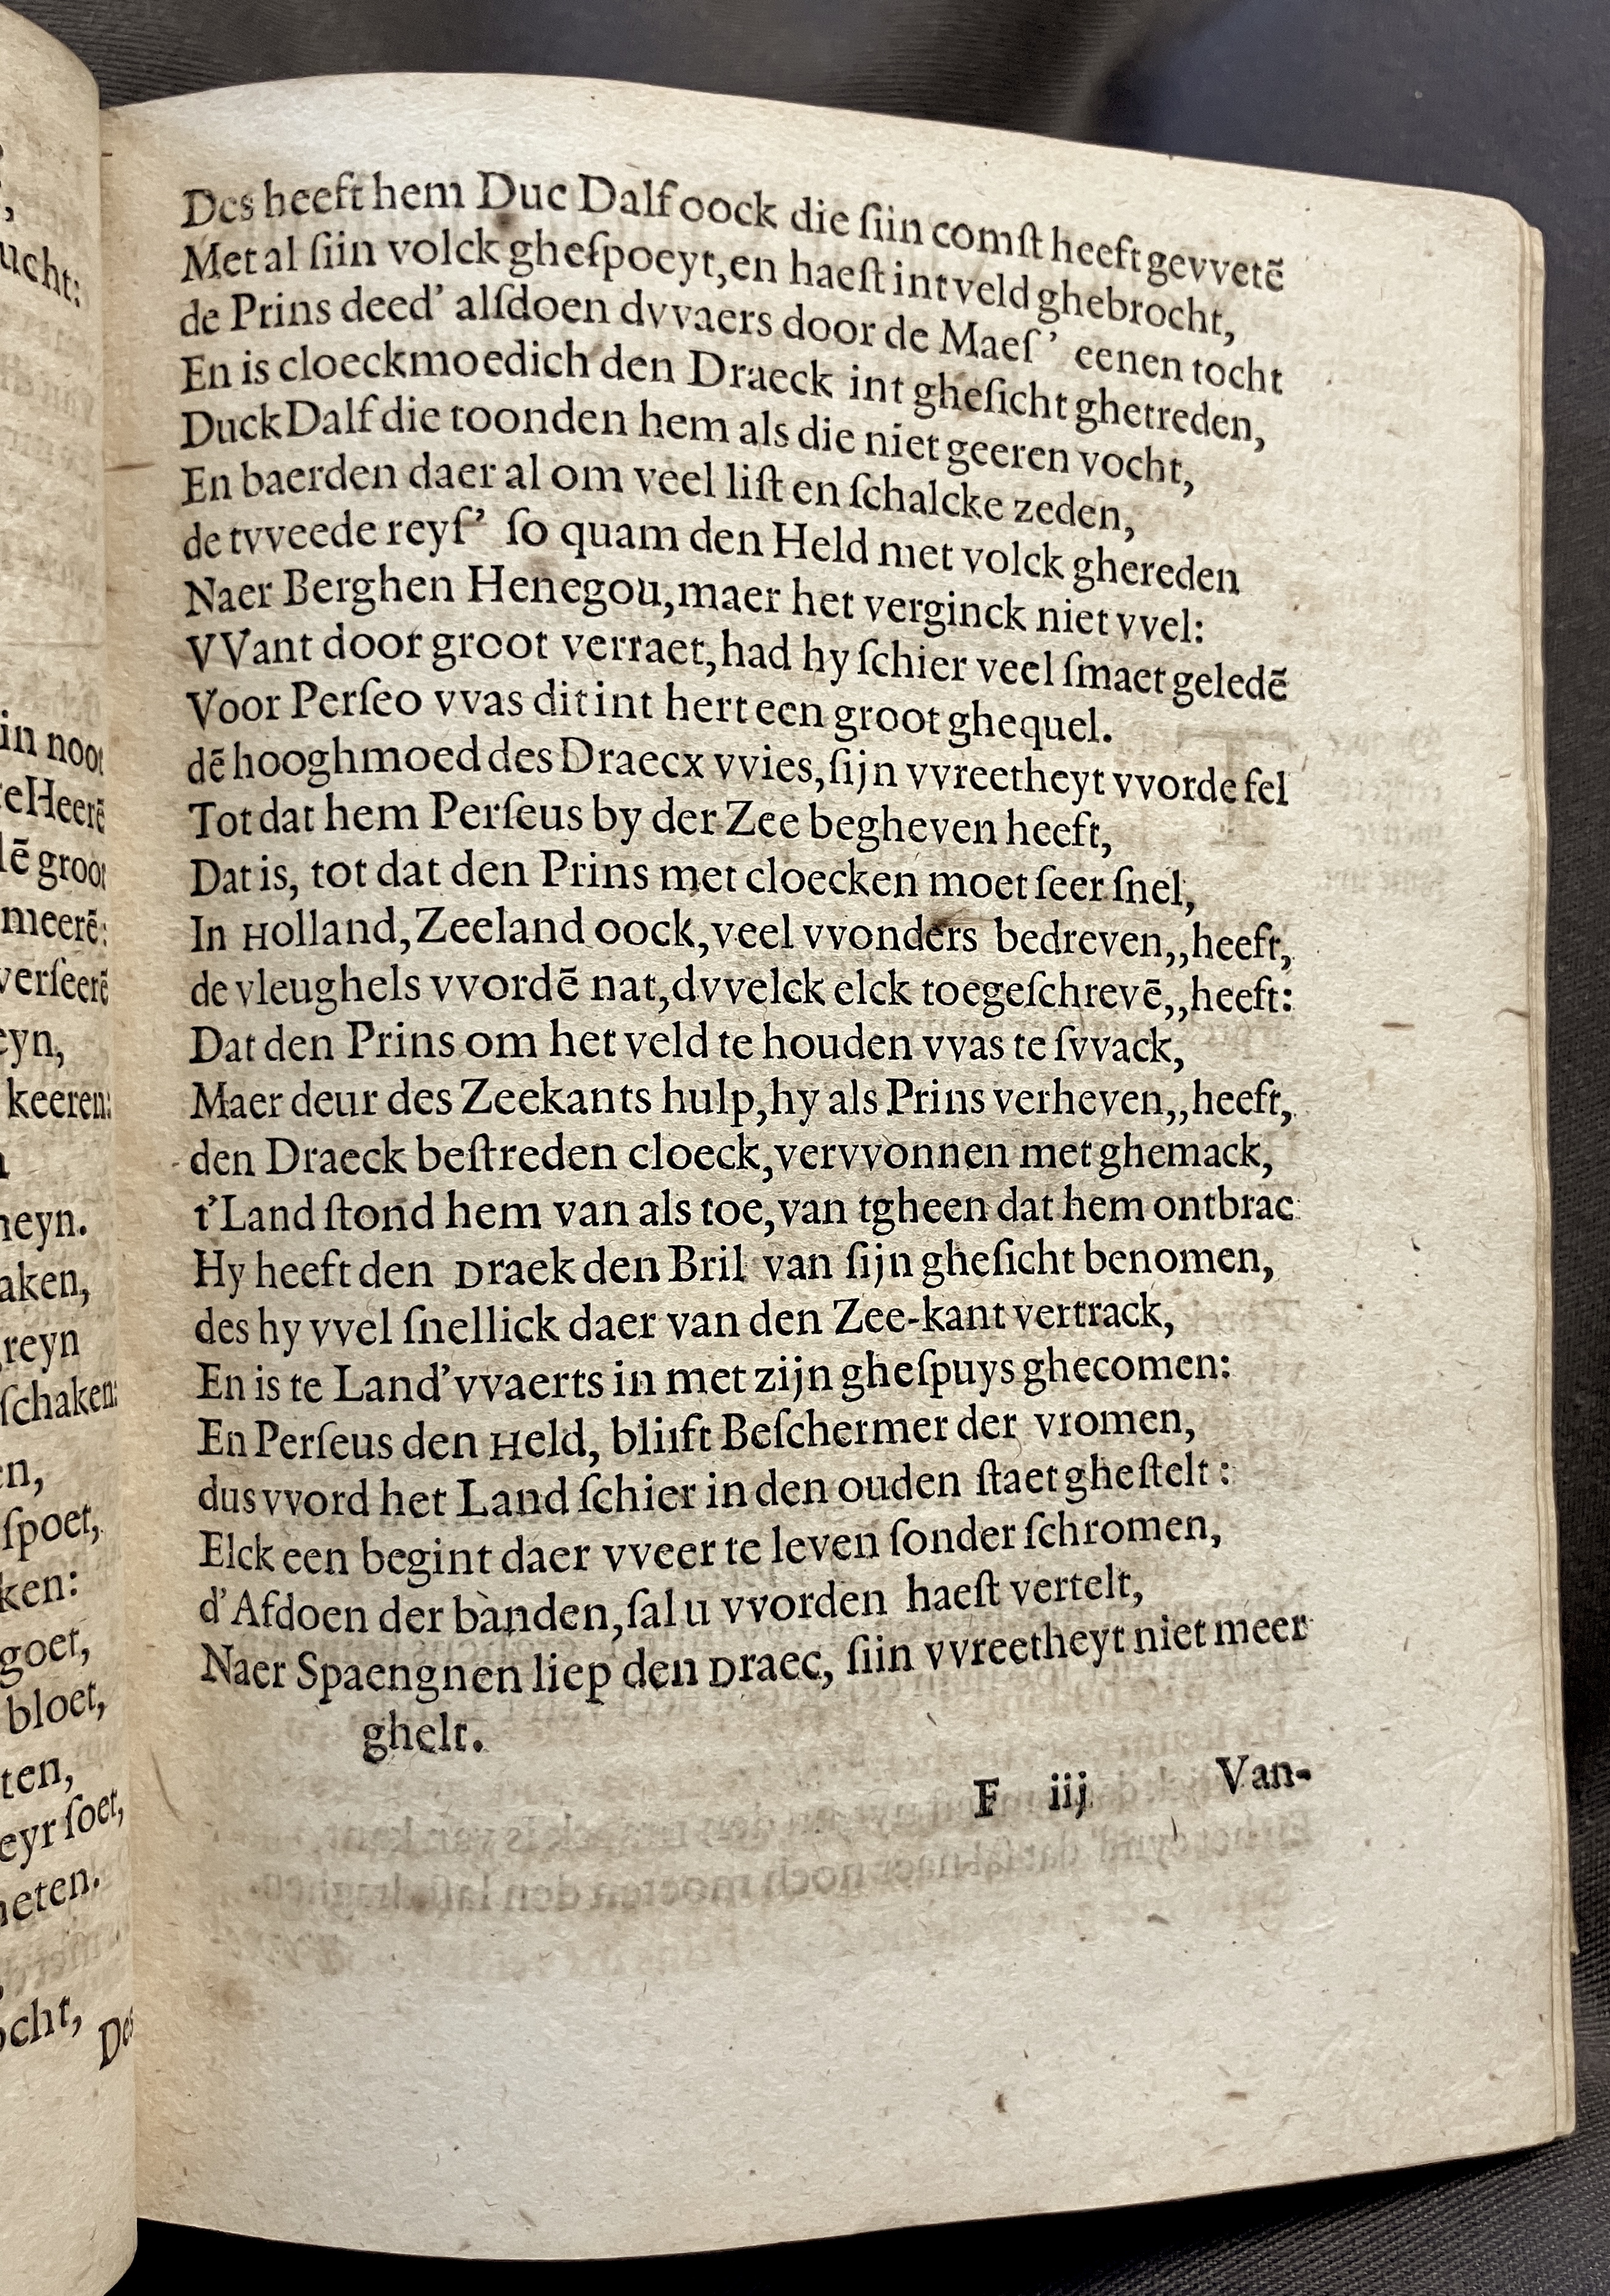 ucht:
in noot
eHeerē
lē groot
meerē:
verſeerē
eyn,
keeren:
neyn.
aken,
reyn
ſchaken:
en,
ſpoet,
ken:
goet,
bloet,
ten,
eyt ſoet,
neten.
ocht,
Des
Des heeft hem Duc Dalf oock die ſiin comſt heeft gevvetē
Met al ſiin volck gheſpoeyt, en haeſt int veld ghebrocht,
de Prins deed' alſdoen dvvaers door de Maeſ' eenen tocht
En is cloeckmoedich den Draeck int gheſicht ghetreden,
Duck Dalf die toonden hem als die niet geeren vocht,
En baerden daer al om veel liſt en ſchalcke zeden,
de tvveede reyſ' ſo quam den Held met volck ghereden
Naer Berghen Henegou, maer het verginck niet vvel:
VVant door groot verraet, had hy ſchier veel ſmaet geledē
Voor Perſeo vvas dit int hert een groot ghequel.
dē hooghmoed des Draecx vvies, ſijn vvreetheyt vvorde fel
Tot dat hem Perſeus by der Zee begheven heeft,
Dat is, tot dat den Prins met cloecken moet ſeer ſnel,
In Holland, Zeeland oock, veel vvonders bedreven,,heeft,
de vleughels vvordē nat, dvvelck elck toegeſchrevē,,heeft:
Dat den Prins om het veld te houden vvas te ſvvack,
Maer deur des Zeekants hulp, hy als Prins verheven,,heeft,
den Draeck beſtreden cloeck, vervvonnen met ghemack,
t'Land ſtond hem van als toe, van tgheen dat hem ontbrac
Hy heeft den Draek den Bril van ſijn gheſicht benomen,
des hy vvel ſnellick daer van den Zee-kant vertrack,
En is te Land'vvaerts in met zijn gheſpuys ghecomen:
En Perſeus den Held, bliift Beſchermer der vromen,
dus vvord het Land ſchier in den ouden ſtaet gheſtelt:
Elck een begint daer vveer te leven ſonder ſchromen,
d'Afdoen der banden, ſal u vvorden haeſt vertelt,
Naer Spaengnen liep den Draec, ſiin vvreetheyt niet meer
ghelt.
F iij Van-